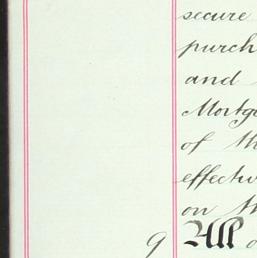 secure
purch
and
Mortga
of th
effectiv
on th
9 All o